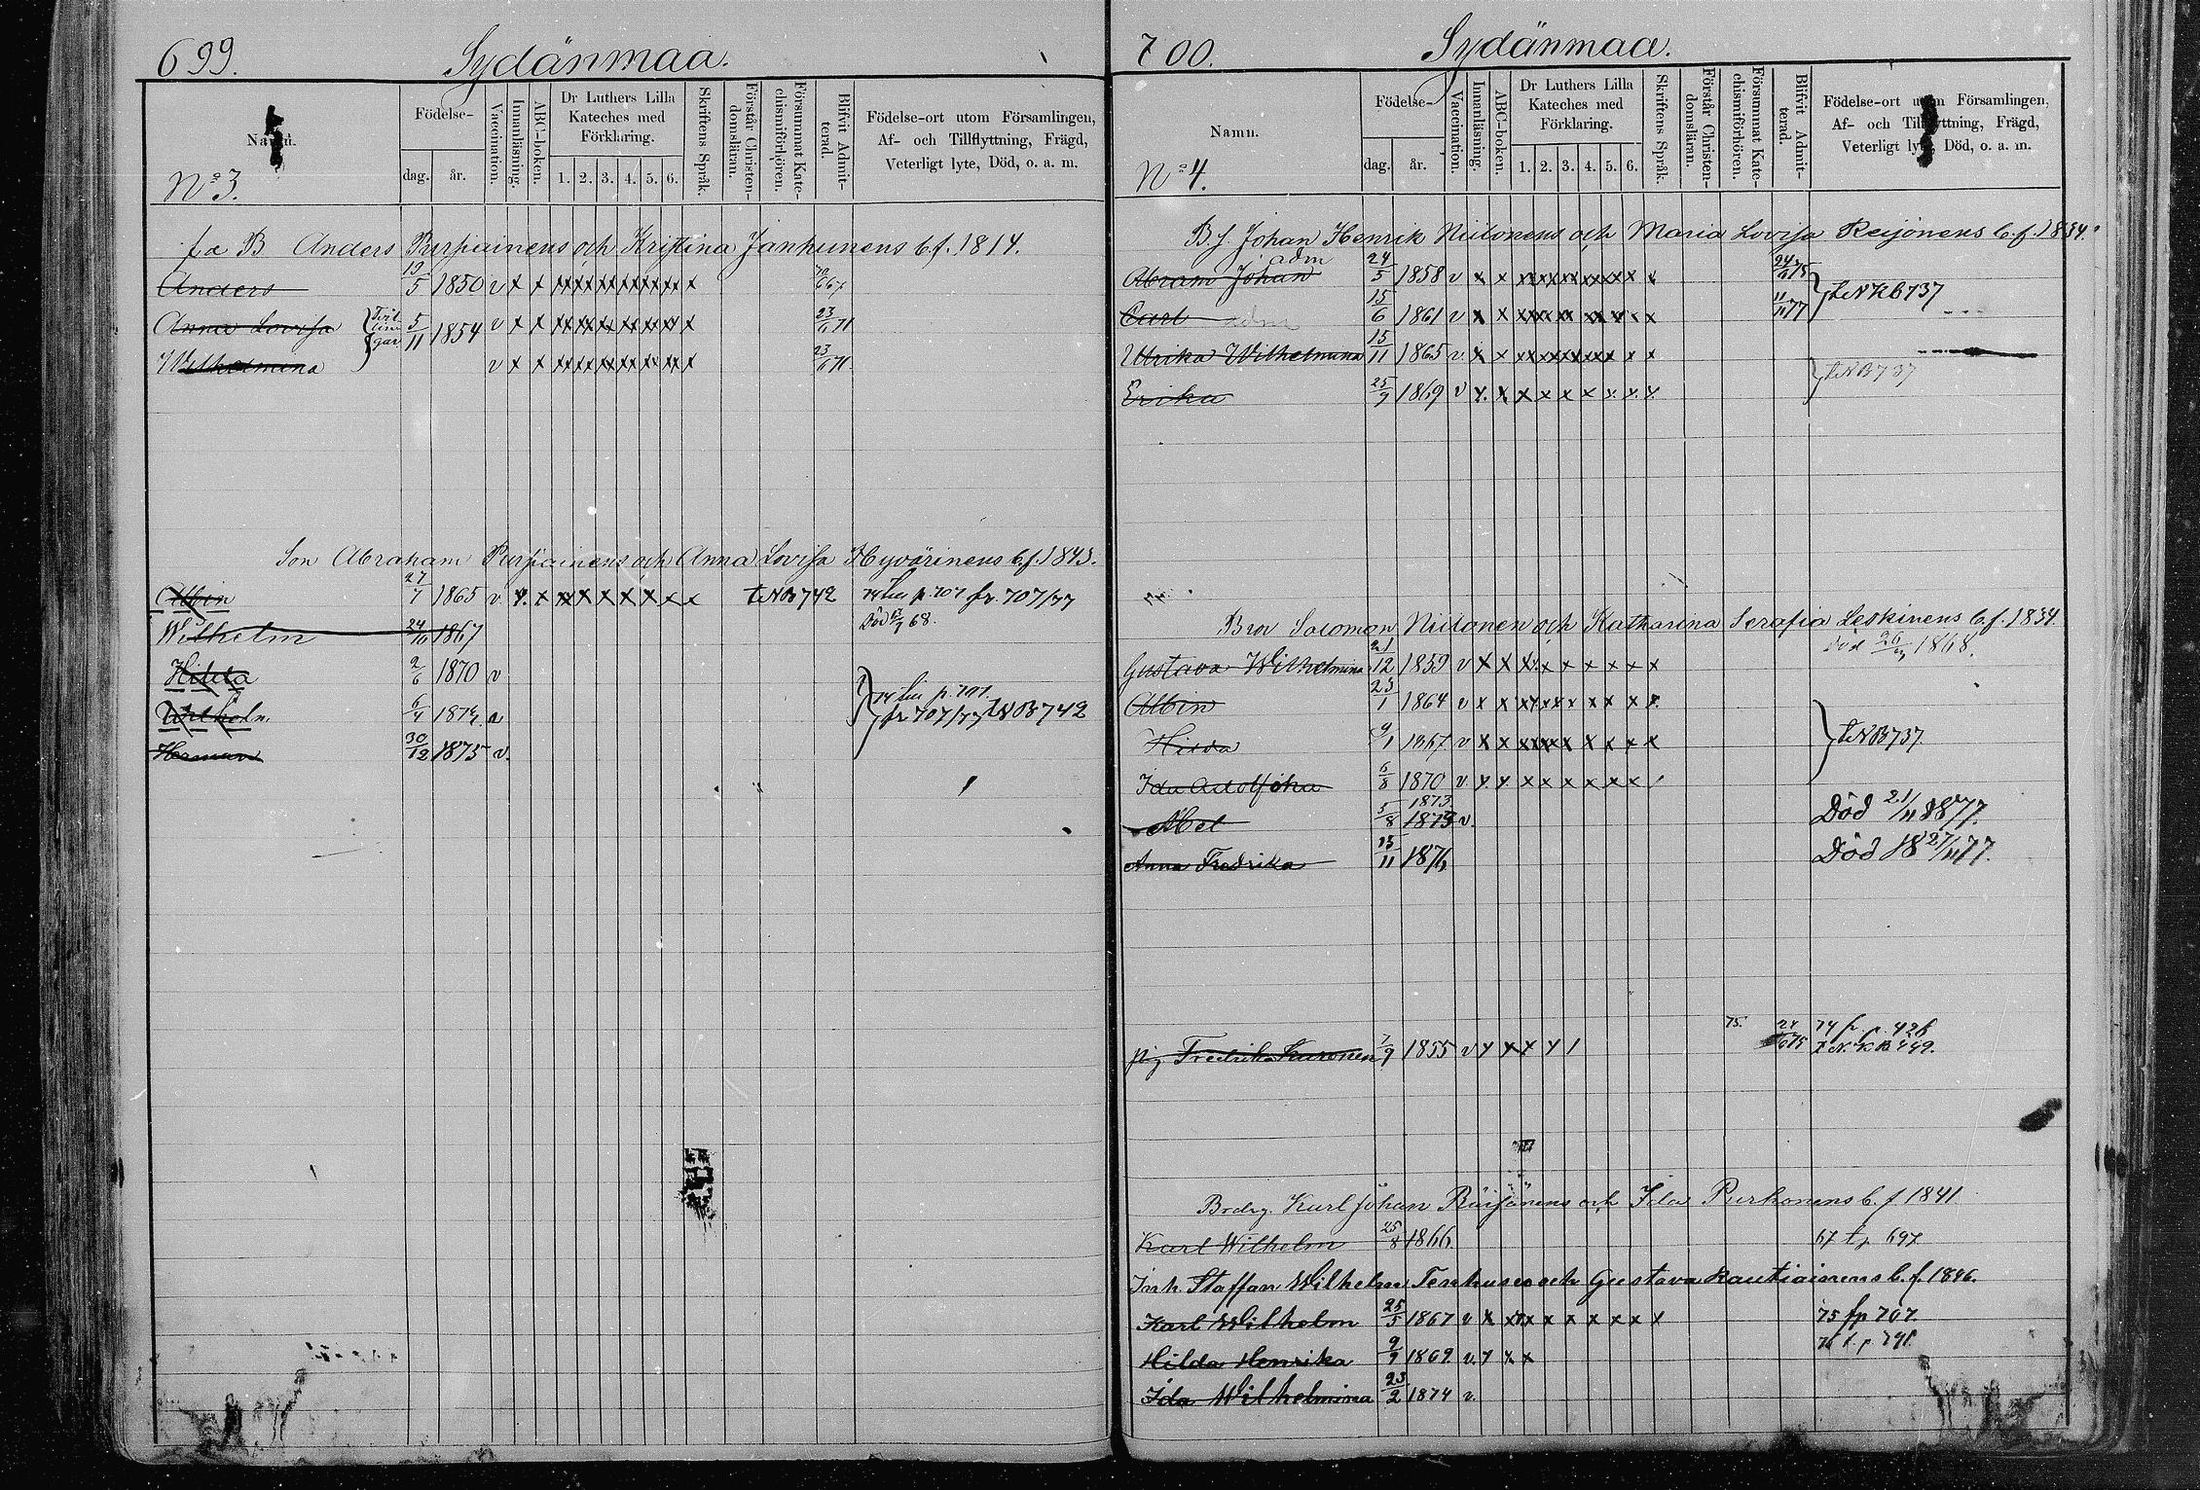 699. Sydänmaa.
Namn.
No 3.
Födelse-
dag. år.
Vaccination.
Innanläsning.
ABC-boken.
Dr Luthers Lilla
Kateches med
Förklaring.
1. 2. 3. 4. 5. 6.
Skriftens Språk.
Förstår Christen-
domsläran.
Försummat Kate-
chismiförhören.
Blifvit Admit-
terad.
Födelse-ort utom Församlingen,
Af- och Tillflyttning, Frägd,
Veterligt lyte, Död, o. a. m.
B Anders Purpiainens och Kristina Janhunens b.f. 1814.
Anders 5 1850 v x x
Anna Lovisa 5/11 1854 v x x 23/6 71
Wilhelmina v x x 23/6 71
Son Abraham Purpiainens och Anna Lovisa Hyvärinens b.f. 1843.
Albin 27/7 1865 v. x x t.N.B 742 fr. 707/77
Wilhelm 24/10 1867 Död 68.
Hilda 2/6 1870 v
Wilhelm. 6/4 1874 v
fr 707/77 t.N.B 742
Herman 30/12 1875 v.
700. Sydänmaa.
Namn.
No 4.
Födelse-
dag. år.
Vaccination.
Innanläsning.
ABC-boken.
Dr Luthers Lilla
Kateches med
Förklaring.
1. 2. 3. 4. 5. 6.
Skriftens Språk.
Förstår Christen-
domsläran.
Försummat Kate-
chismiförhören.
Blifvit Admit-
terad.
Födelse-ort utom Församlingen,
Af- och Tillflyttning, Frägd,
Veterligt lyte, Död, o. a. m.
Johan Henrik Niilonens och Maria Lovisa Reijonens b.f. 1834.
adm
Abram Johan 24/5 1858 v x x
t.N.KB 737
Carl adm 15/6 1861 v x x
Ulrika Wilhelmina 15/11 1865 v. x x
t.N.B 737
Erika 25/9 1869 v x. x x x x x x. x. x.
Bror Salomon Niilonen och Katharina Serafia Leskinens b.f. 1834.
Död 1868
Gustava Wilhelmina 21/12 1859 v x x
Albin 23/1 1864 v x x
Hilda 9/1 1867 v x x
t.N.B 737.
Ida Adolfina 6/8 1870 v x x x x x x x x
1873
Abel 5/8 1873 v. Död 21/11 1877.
Anna Fredrika 13/11 1876 Död 18 27/11 77.
pig Fredrika Kuronen 7/9 1855 v x x x x 75. 74 fr. p. 426
t N. K B 449.
Karl Johan och Ida Purhonens b.f 1841
Karl Wilhelm 25/8 1866 67 t.p 697
Inh. Staffan Wilhelm Tenhunen och Gustava Rautiainens b.f. 1846.
Karl Wilhelm 25/5 1867 v x x x x x x x x 75 fp 707.
Hilda Henrika 9/9 1869. v. x x x
Ida Wilhelmina 23/2 1874 v.